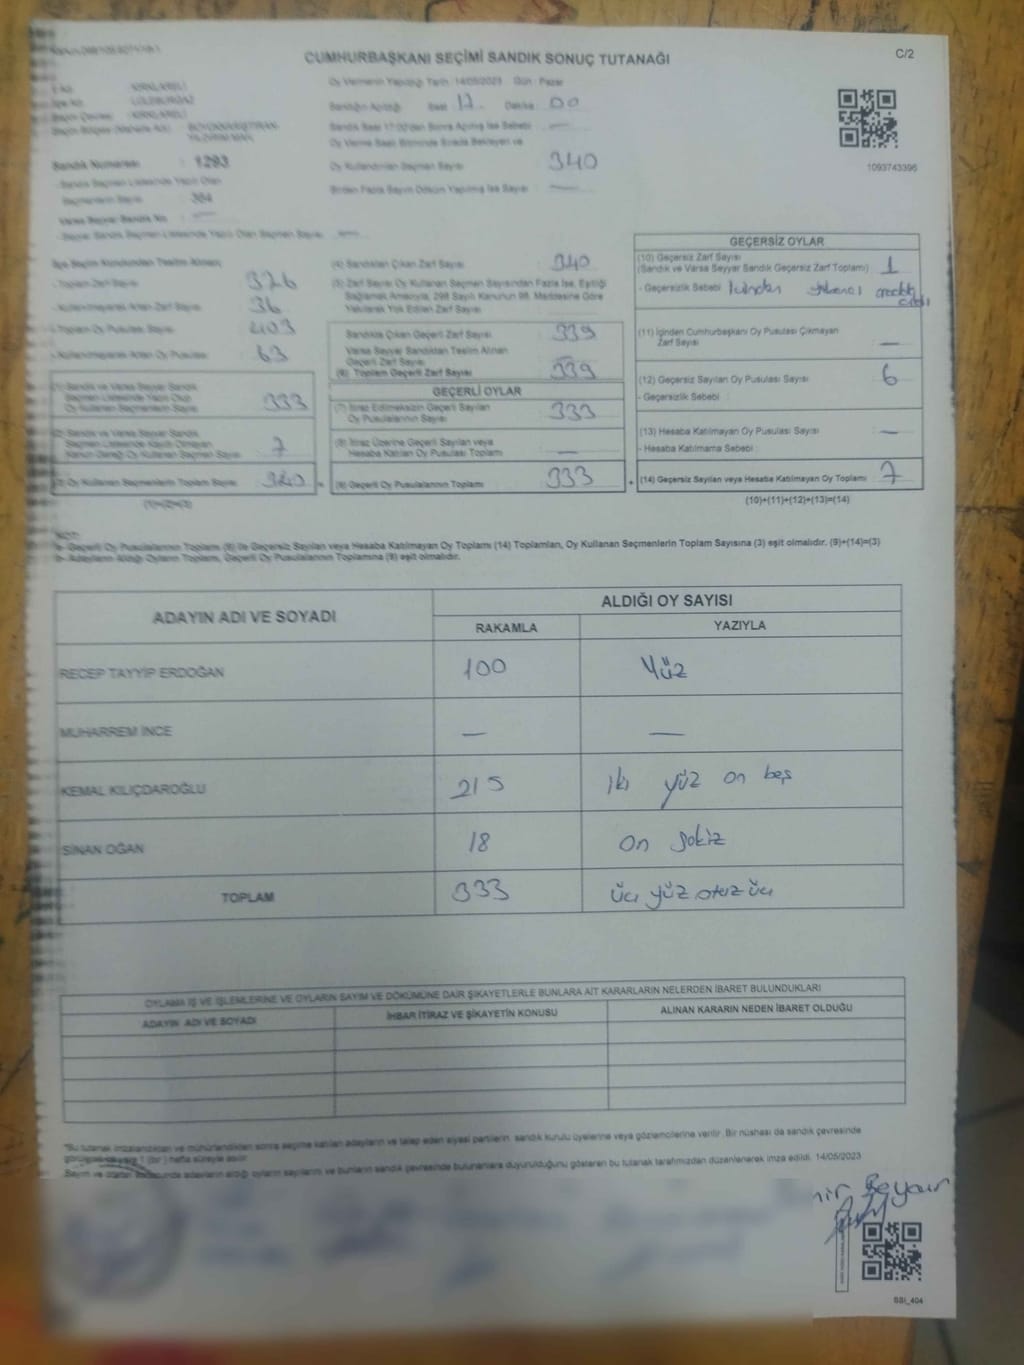 CUMHURBAŞKANI SEÇİMİ SANDIK SONUÇ TUTANAĞI
C/2
Oy Vermenin Yapıldığı Tarih : 14/05/2023 Gün : Pazar
KIRKLARELİ
LÜLEBURGAZ
KIRKLARELİ
Sandığın Açıldığı Saat 17 Dakika : 00
Sandık Saat 17:00'den Sonra Açılmış İse Sebebi : —
Oy Verme Saati Bitiminde Sırada Bekleyen ve
Oy Kullandırılan Seçmen Sayısı 340
Birden Fazla Sayım Döküm Yapılmış İse Sayısı —
1093743396
Sandık Numarası : 1293
- Sandık Seçmen Listesinde Yazılı Olan
Seçmenlerin Sayısı
Varsa Seyyar Sandık No : —
- Seyyar Sandık Seçmen Listesinde Yazılı Olan Seçmen Sayısı : —
İlçe Seçim Kurulundan Teslim Alınan;
- Toplam Zarf Sayısı 376
- Kullanılmayarak Artan Zarf Sayısı 36
- Toplam Oy Pusulası Sayısı 403
- Kullanılmayarak Artan Oy Pusulası 63
(1) Sandık ve Varsa Seyyar Sandık
Seçmen Listesinde Yazılı Olup
Oy Kullanan Seçmenlerin Sayısı 333
(2) Sandık ve Varsa Seyyar Sandık
Seçmen Listesinde Kayıtlı Olmayan
Kanun Gereği Oy Kullanan Seçmen Sayısı 7
(3) Oy Kullanan Seçmenlerin Toplam Sayısı 340 =
(1)+(2)=(3)
(4) Sandıktan Çıkan Zarf Sayısı 340
(5) Zarf Sayısı Oy Kullanan Seçmen Sayısından Fazla İse, Eşitliği
Sağlamak Amacıyla, 298 Sayılı Kanunun 98. Maddesine Göre
Yakılarak Yok Edilen Zarf Sayısı
Sandıkta Çıkan Geçerli Zarf Sayısı 339
Varsa Seyyar Sandıktan Teslim Alınan
Geçerli Zarf Sayısı —
(6) Toplam Geçerli Zarf Sayısı 339
GEÇERLİ OYLAR
(7) İtiraz Edilmeksizin Geçerli Sayılan
Oy Pusulalarının Sayısı 333
(8) İtiraz Üzerine Geçerli Sayılan veya
Hesaba Katılan Oy Pusulası Toplamı —
(9) Geçerli Oy Pusulalarının Toplamı 333 +
GEÇERSİZ OYLAR
(10) Geçersiz Zarf Sayısı
(Sandık ve Varsa Seyyar Sandık Geçersiz Zarf Toplamı) 1
- Geçersizlik Sebebi
(11) İçinden Cumhurbaşkanı Oy Pusulası Çıkmayan
Zarf Sayısı —
(12) Geçersiz Sayılan Oy Pusulası Sayısı 6
- Geçersizlik Sebebi :
(13) Hesaba Katılmayan Oy Pusulası Sayısı —
- Hesaba Katılmama Sebebi :
(14) Geçersiz Sayılan veya Hesaba Katılmayan Oy Toplamı 7
(10)+(11)+(12)+(13)=(14)
NOT:
a- Geçerli Oy Pusulalarının Toplamı (9) ile Geçersiz Sayılan veya Hesaba Katılmayan Oy Toplamı (14) Toplamları, Oy Kullanan Seçmenlerin Toplam Sayısına (3) eşit olmalıdır. (9)+(14)=(3)
b- Adayların Aldığı Oyların Toplamı, Geçerli Oy Pusulalarının Toplamına (9) eşit olmalıdır.
ADAYIN ADI VE SOYADI
ALDIĞI OY SAYISI
RAKAMLA YAZIYLA
RECEP TAYYİP ERDOĞAN 100 Yüz
MUHARREM İNCE — —
KEMAL KILIÇDAROĞLU 215 İki yüz on beş
SİNAN OĞAN 18 on sekiz
TOPLAM 333 üç yüz otuz üç
OYLAMA İŞ VE İŞLEMLERİNE VE OYLARIN SAYIM VE DÖKÜMÜNE DAİR ŞİKAYETLERLE BUNLARA AİT KARARLARIN NELERDEN İBARET BULUNDUKLARI
ADAYIN ADI VE SOYADI İHBAR İTİRAZ VE ŞİKAYETİN KONUSU ALINAN KARARIN NEDEN İBARET OLDUĞU
*Bu tutanak imzalandıktan ve mühürlendikten sonra seçime katılan adayların ve talep eden siyasi partilerin sandık kurulu üyelerine veya gözlemcilerine verilir. Bir nüshası da sandık çevresinde
görülecek yere 1 (bir) hafta süreyle asılır.
Seçim ve adayların aldığı oyların sayılarını ve bunların sandık çevresinde bulunanlara duyurulduğunu gösteren bu tutanak tarafımızdan düzenlenerek imza edildi. 14/05/2023
SSI_404